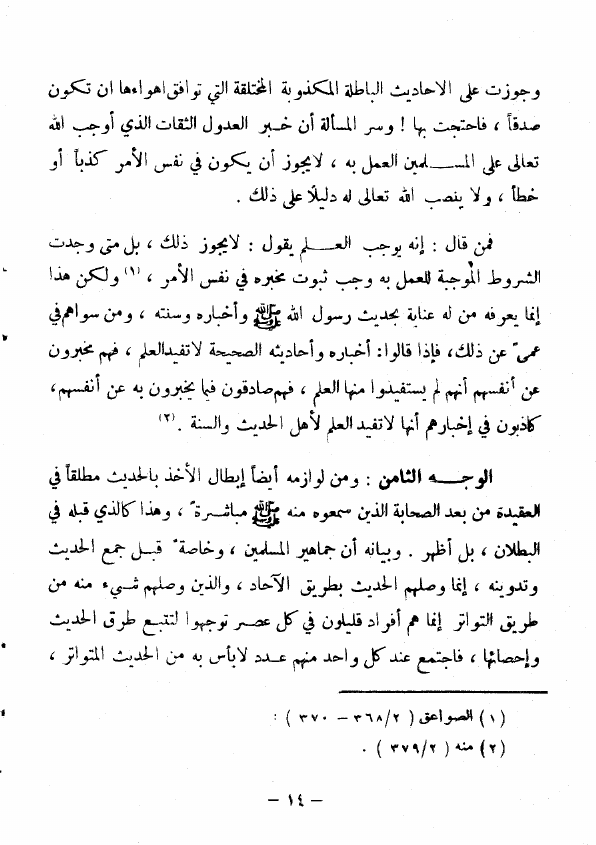 وجوزت على الاحاديث الباطلة المكذوبة المختلقة التي توافق اهواءها ان تكون
صدقاً ، فاحتجت بها ! وسر المسألة أن خبر العدول الثقات الذي أوجب الله
تعالى على المسلمين العمل به ، لايجوز أن يكون في نفس الأمر كذباً أو
خطأ ، ولا ينصب الله تعالى له دليلاً على ذلك .
فمن قال : إنه يوجب العلم يقول : لايجوز ذلك ، بل متى وجدت
الشروط الموجبة للعمل به وجب ثبوت مخبره في نفس الأمر ، (١) ولكن هذا
إنما يعرفه من له عناية بحديث رسول الله ﷺ وأخباره وسنته ، ومن سواهم في
عمىً عن ذلك، فإذا قالوا: أخباره وأحاديثه الصحيحة لاتفيد العلم ، فهم مخبرون
عن أنفسهم أنهم لم يستفيدوا منها العلم ، فهم صادقون فيما يخبرون به عن أنفسهم،
كاذبون في إخبارهم أنها لاتفيد العلم لأهل الحديث والسنة . (٢)
الوجه الثامن : ومن لوازمه أيضاً إبطال الأخذ بالحديث مطلقاً في
العقيدة من بعد الصحابة الذين سمعوه منه ﷺ مباشرةً ، وهذا كالذي قبله في
البطلان ، بل أظهر . وبيانه أن جماهير المسلمين ، وخاصةً قبل جمع الحديث
وتدوينه ، إنما وصلهم الحديث بطريق الآحاد ، والذين وصلهم شيء منه من
طريق التواتر إنما هم أفراد قليلون في كل عصر توجهوا لتتبع طرق الحديث
وإحصائها ، فاجتمع عند كل واحد منهم عدد لابأس به من الحديث المتواتر ،
(١) الصواعق ( ٣٦٨/٢ – ٣٧٠ ) :
(٢) منه ( ٣٧٩/٢ ) .
– ١٤ –